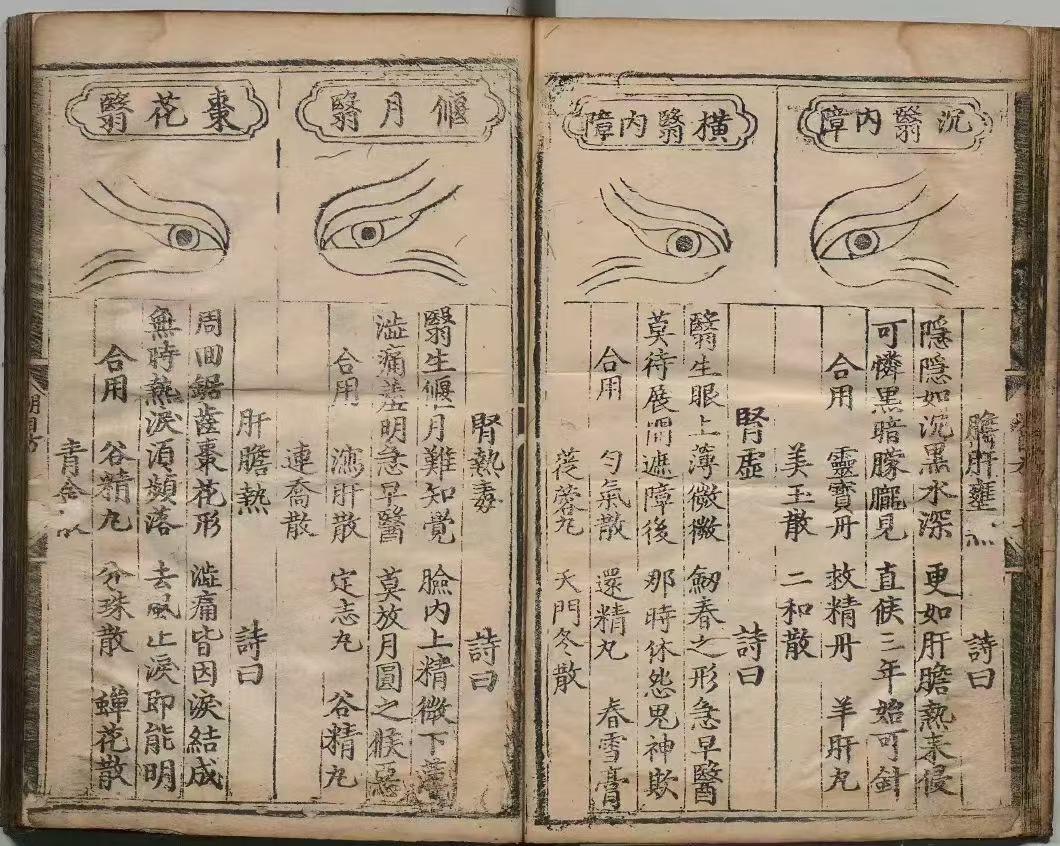 沉翳內障
膽肝壅
詩曰
隱隱如沉黑水深 更如肝膽熱來侵
可憐黑暗朦朧見 直候三年始可針
合用 靈寶丹 救精丹 羊肝丸
美玉散 二和散
橫翳內障
腎虛
詩曰
翳生眼上薄微微 劒脊之形急早醫
莫待展開遮障後 那時休怨鬼神欺
合用 勻氣散 還精丸 春雪膏
蓯蓉丸 天門冬散
偃月翳
腎熱毒
詩曰
翳生偃月難知覺 臉內上精微下
澁痛羞明急早醫 莫放月圓之後惡
合用 瀉肝散 定志丸 谷精丸
連喬散
棗花翳
肝膽熱
詩曰
周回鋸齒棗花形 澁痛皆因淚結成
無時熱淚湏頻落 去風止淚即能明
合用 谷精丸 分珠散 蟬花散
青金